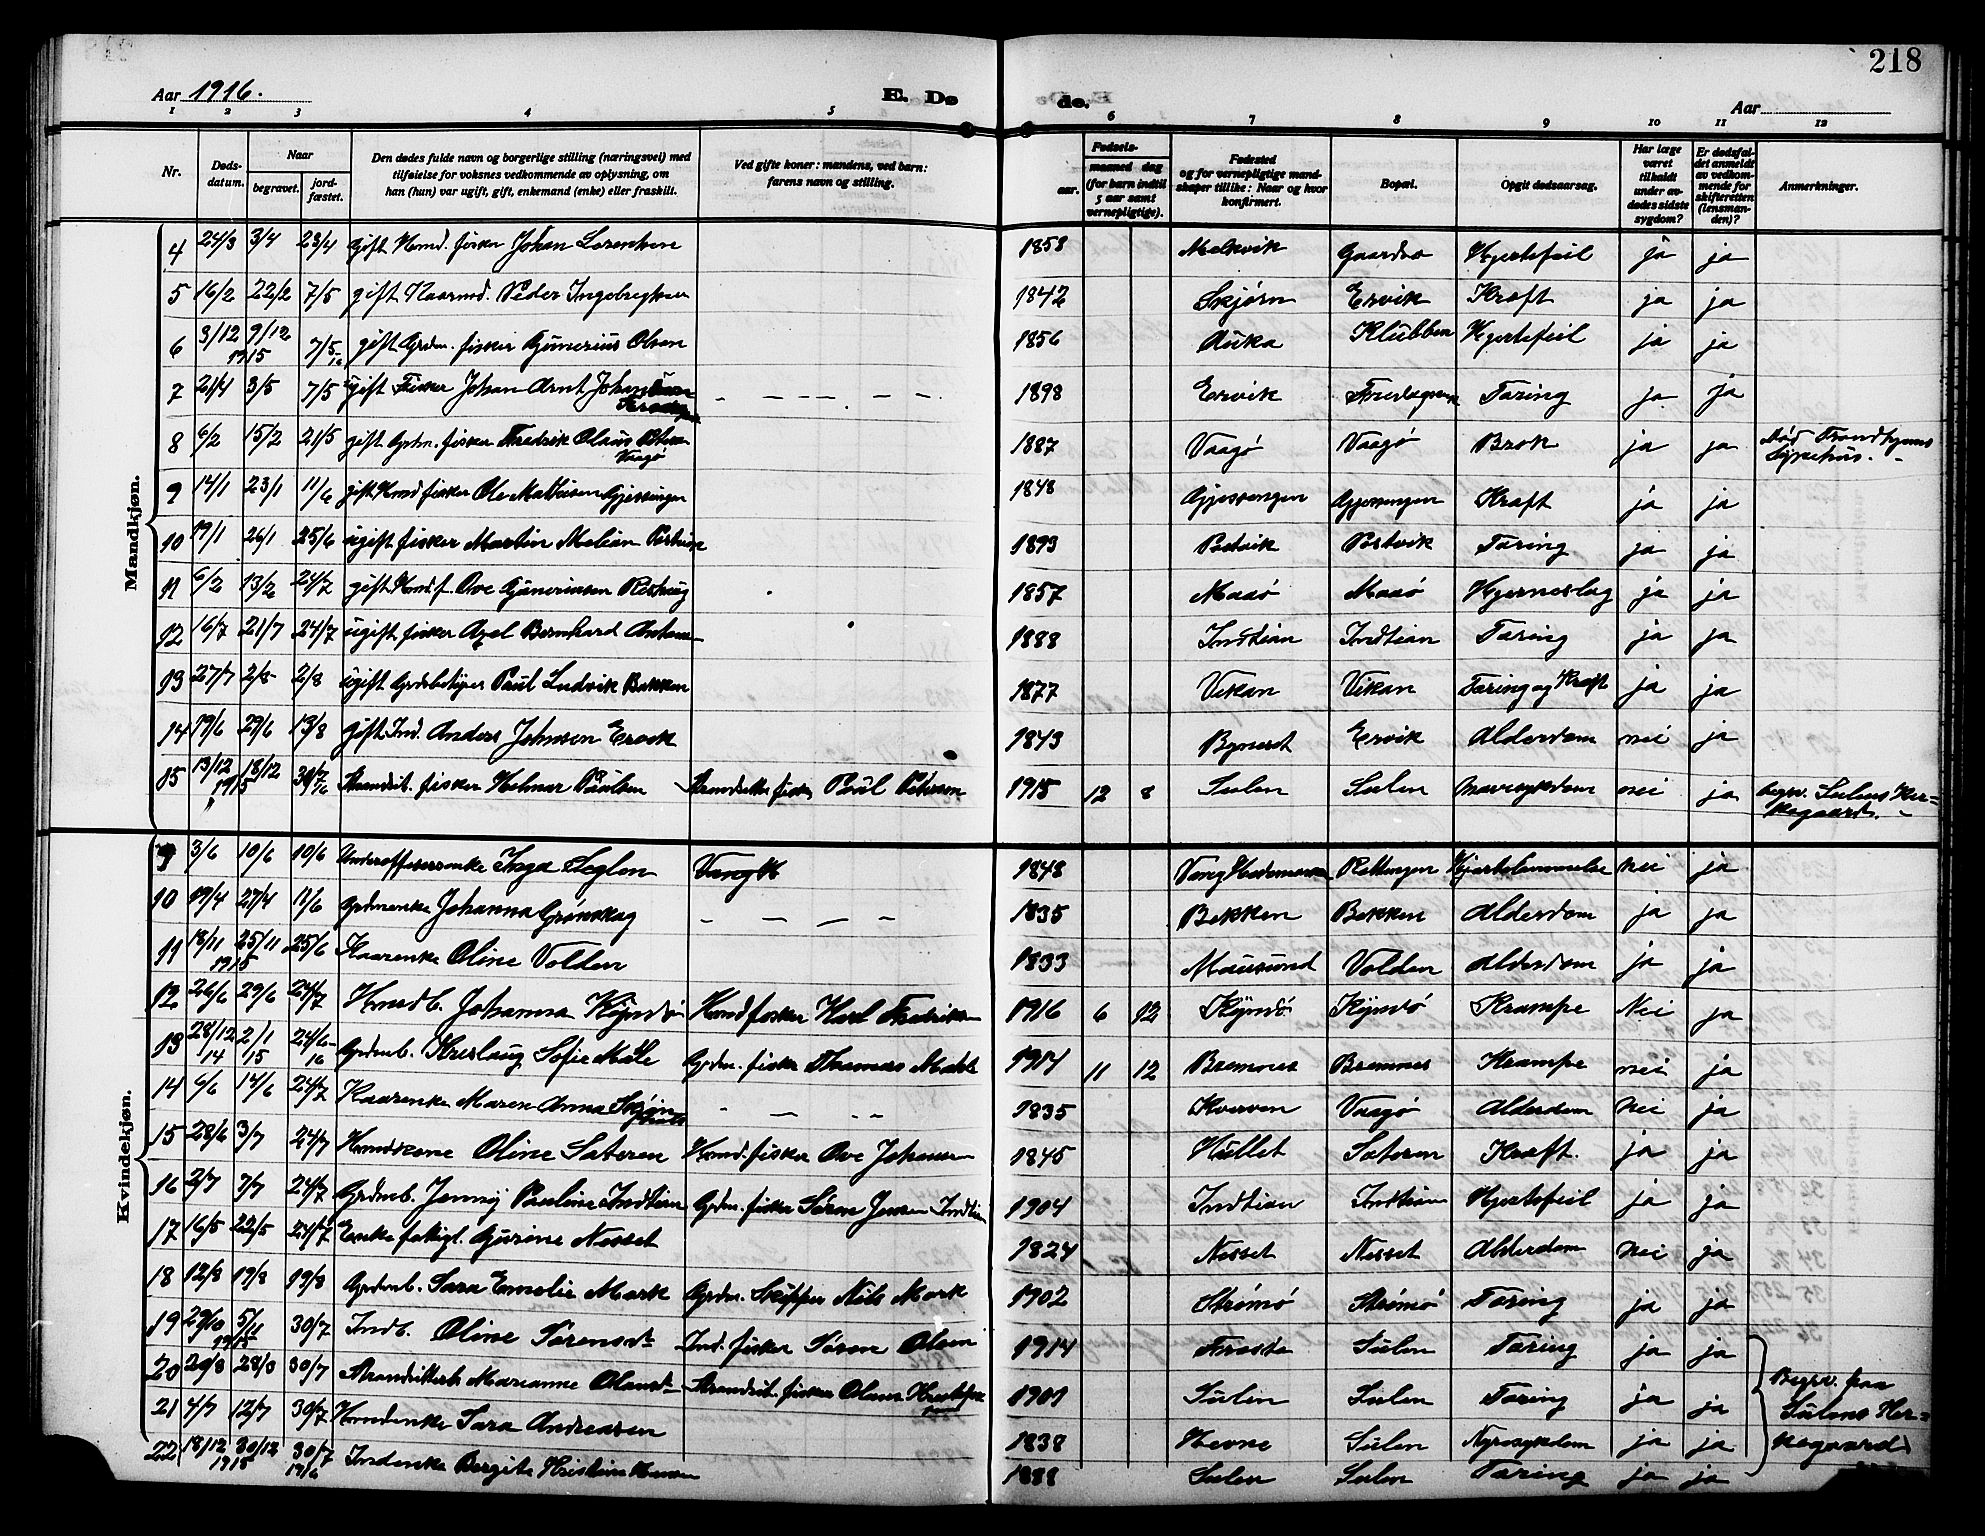 218
Aar 1916.
E. Dø
de.
Aar
1 2 3 4 5 6 7 8 9 10 11 12
Nr.
Døds-
datum.
Naar
begravet.
jord-
fæstet.
Den dødes fulde navn og borgerlige stilling (næringsvei) med
tilføielse for voksnes vedkommende av oplysning, om
han (hun) var ugift, gift, enkemand (enke) eller fraskilt.
Ved gifte koner: mandens, ved barn:
farens navn og stilling.
Fødsels-
aar.
maaned dag
(for barn indtil
5 aar samt
vernepligtige).
Fødested
og for vernepligtige mand-
skaper tillike: Naar og hvor
konfirmert.
Bopæl.
Opgit dødsaarsag.
Har læge
været
tilkaldt
under av-
dødes sidste
sygdom?
Er dødsfal-
det anmeldt
av vedkom-
mende for
skifteretten
(lensman-
den)?
Anmerkninger.
Mandkjøn.
4 24/3 3/4 23/4 gift fisker Johan Lorentsen 1858 Melkvik Hjertefeil ja ja
5 16/2 22/2 7/5 gift Kaarmd. Peder Ingebregtsen 1842 Skjørn Ervik Kræft ja ja
6 3/12 9/12 1915 7/5 16 gift Grdm. fisker Gjunerius Olsen 1856 Auka Klubben Hjertefeil ja ja
7 21/4 3/5 7/5 gift Fisker Johan Arnt 1898 Ervik Tæring ja ja
8 6/2 15/2 21/5 gift Grdm. fisker Fredrik Olaus Vaagø 1887 Vaagø Vaagø Brok ja ja død Trondhjems
Sykehus.
9 14/1 23/1 11/6 gift fisker Ole Mathisen Gjessingen 1848 Gjessengen Gjessengen Kræft ja ja
10 19/1 26/1 25/6 ugift fisker Martin Melian Postvik 1893 Postvik Postvik Tæring ja ja
11 6/2 13/2 24/7 gift f. Ove 1857 Maaø Maaø Hjerneslag ja ja
12 16/7 21/7 24/7 ugift fisker Axel Bernhard Antons 1888 Indtian Indtian Tæring ja ja
13 27/7 2/8 2/8 ugift Paul Ludvik Bekken 1877 Vikan Vikan Tæring og Kræft ja ja
14 19/6 29/6 13/8 gift Ind. Anders Johnsen Ervik 1843 Byneset Ervik Alderdom nei ja
15 13/12 18/12 1915 30/7 16 Strandsit. fisker Helmar Paulsen Strandsitter fisker Paul Petersen 1915 12 8 Sulen Sulen Mavesykdom nei ja begr. Sulens Kir-
kegaard.
Kvindekjøn.
9 3/6 10/6 10/6 Underofficersenke Inga Seglen Vang H 1848 Vang Hedemarken Hjertelammelse nei ja
10 19/4 27/4 11/6 Grdmenke Johanna Grønskag 1835 Bekken Bekken Alderdom ja ja
11 18/11 25/11 1915 25/6 Kaarenke Oline Volden 1833 Mausund Volden Alderdom ja ja
12 26/6 29/6 24/7 Johanna Kjyndø fisker Karl Fredriksen 1916 6 12 Kjyndø Kjyndø Krampe Nei ja
13 28/12 14 2/1 15 24/6 16 Grdmb. Sofie Grdm. fisker Thomas 1914 11 12 Bremnes Bremnes Krampe nei ja
14 6/6 14/6 24/7 Kaarenke Maren Anna 1835 Kverven Vaagø Alderdom nei ja
15 28/6 3/7 24/7 Oline Sæteren fisker Ove Johansen 1845 Hullet Sæteren Kræft. ja ja
16 2/7 7/7 24/7 Grdmb. Jenny Pauline Indtian Grdm. fisker Søren Jensen Indtian 1904 Indtian Indtian Hjertefeil ja ja
17 16/5 22/5 24/7 Enke fattigl. Gurine Nesset 1824 Nesset Nesset Alderdom nei ja
18 12/8 19/8 19/8 Grdmb. Sara Emelie Mork Grdm. Skipper Nils Mork 1902 Strømø Strømø Tæring ja ja
19 29/10 5/11 1915 30/7 Indb. Oline Sørensdt Ind. fisker Søren Olsen 1914 Frosta Sulen Tæring ja ja
20 20/3 28/3 30/7 Marianne Olausdt Strandsit. fisker Olaus 1901 Sulen Sulen Tæring ja ja Begr. paa
21 4/7 12/7 30/7 Sara Andreasen 1838 Hevne Sulen Nyresykdom ja ja Sulens Kir-
kegaard
22 18/12 30/12 1915 30/7 1916 Indenke Bergite Kristine 1888 Sulen Sulen Tæring ja ja